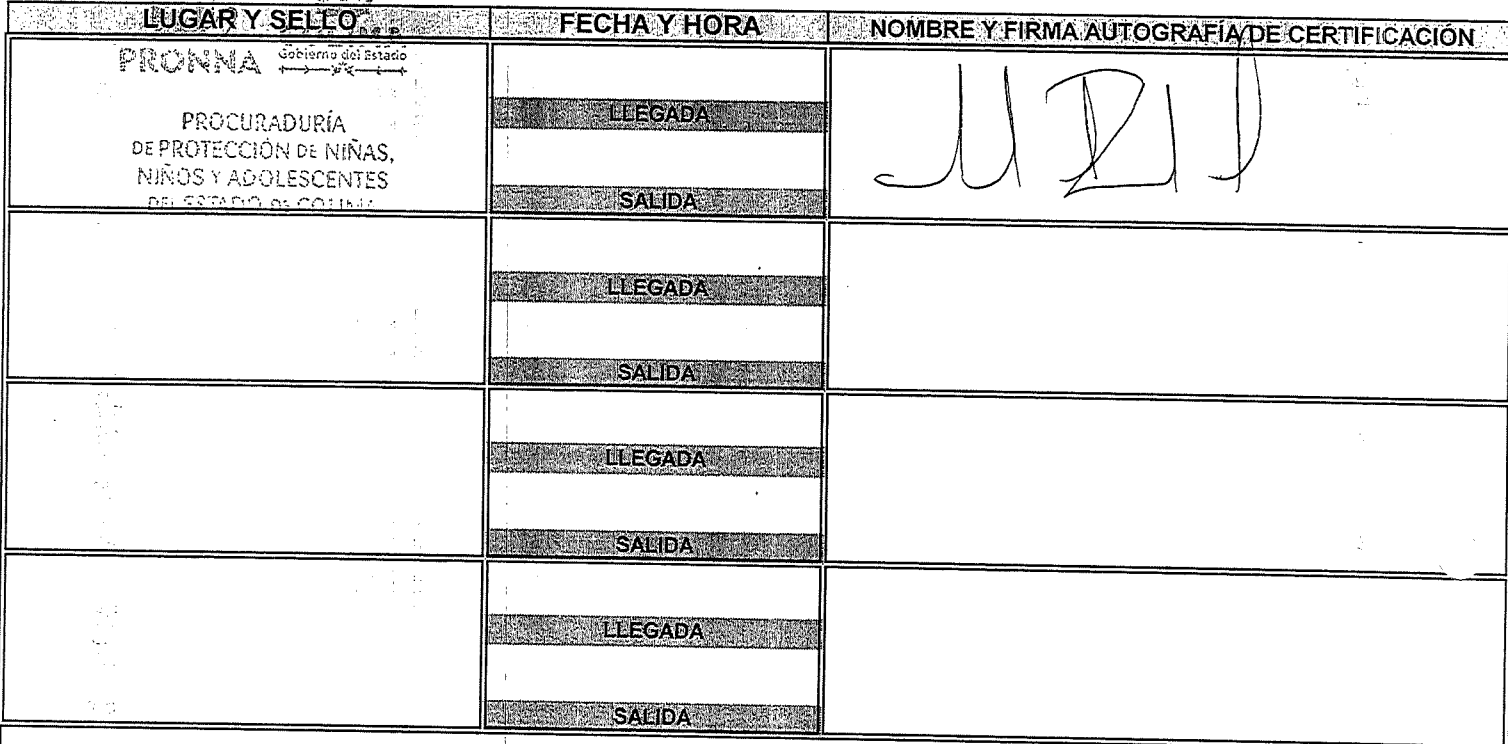 LUGAR Y SELLO
FECHA Y HORA
NOMBRE Y FIRMA AUTOGRAFÍA DE CERTIFICACIÓN
PRONNA
Gobierno del Estado
PROCURADURÍA
DE PROTECCIÓN DE NIÑAS,
NIÑOS Y ADOLESCENTES
DEL ESTADO DE COLIMA
LLEGADA
SALIDA
LLEGADA
SALIDA
LLEGADA
SALIDA
LLEGADA
SALIDA